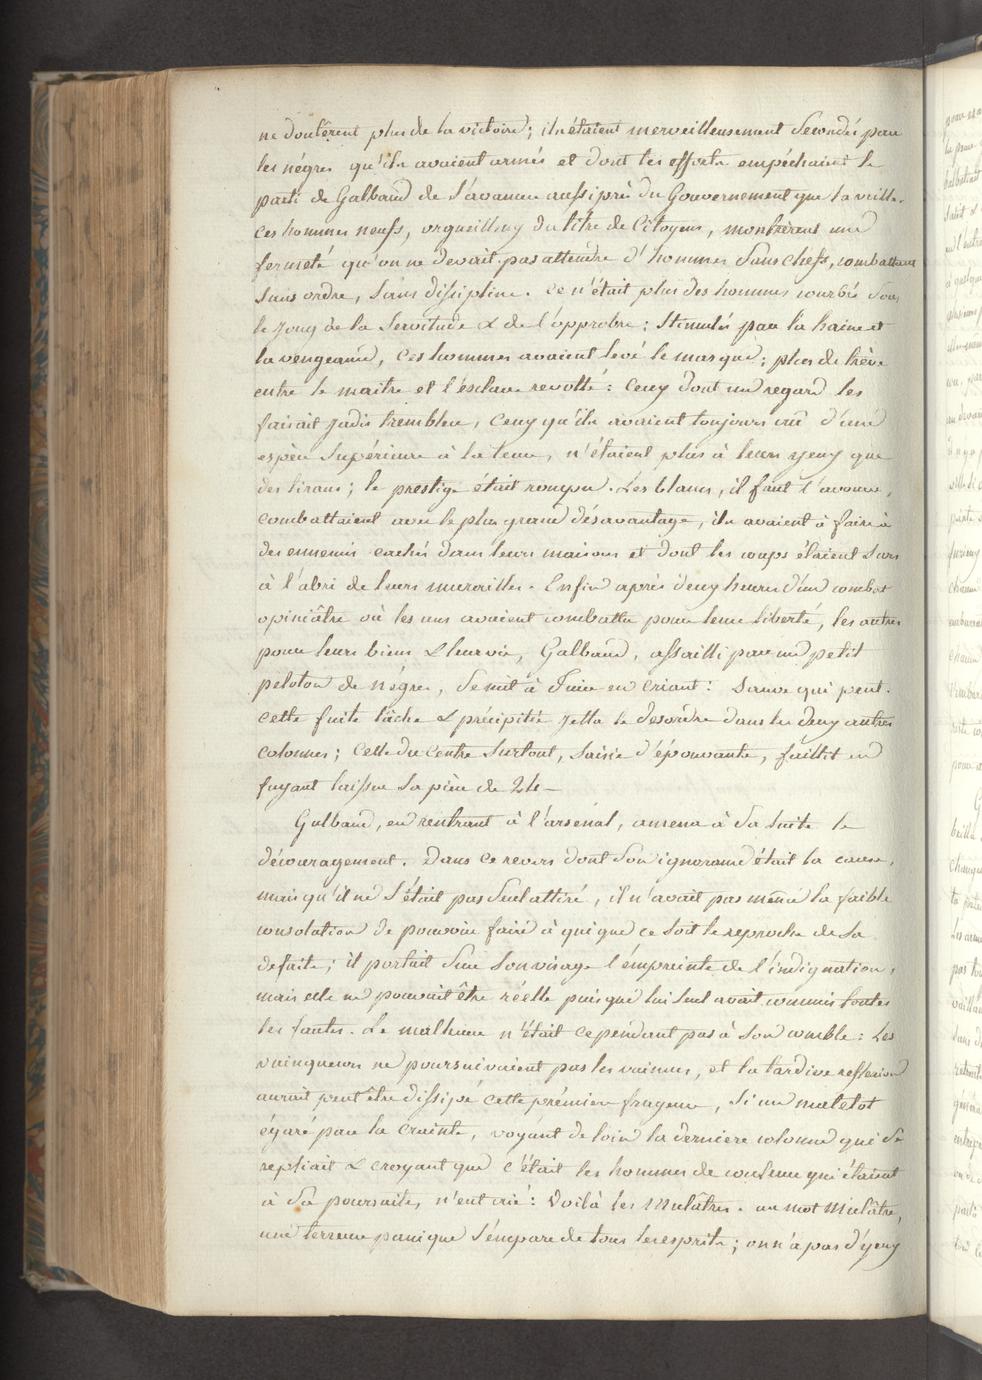 ne doutèrent plus de la victoire; ils étaient merveilleusement secondés par
les négres qu'ils avaient armés et dont les efforts empéchaient le
parti de Galbaud de s'avancer aussi près du Gouvernement que la veille.
Ces hommes neufs, orgueilleux du titre de Citoyens, montrèrent une
fermeté qu'on ne devait pas attendre d'hommes sans chefs, combattant
sans ordre, sans discipline. Ce n'était plus des hommes courbés sous
le joug de la servitude & de l'opprobre; stimulés par la haine et
la vengeance, ces hommes avaient levé le masque; plus de trève
entre le maitre et l'esclave revolté: ceux dont un regard les
faisait jadis trembler, ceux qu'ils avaient toujours cru d'une
espèce supérieure à la leur, n'étaient plus à leurs yeux que
des tirans; le prestige était rompu. Les blancs, il faut l'avouer,
combattaient avec le plus grand désavantage, ils avaient à faire à
des ennemis cachés dans leurs maisons et dont les coups étaient surs
à l'abri de leurs murailles. Enfin après deux heures d'un combat
opiniâtre où les uns avaient combattu pour leur liberté, les autres
pour leurs biens & leur vie, Galbaud, assailli par un petit
peloton de négres, se mit à fuir en criant: sauve qui peut.
cette fuite lâche & précipitée jetta le desordre dans les deux autres
colonnes; celle du centre surtout, saisie d'épouvante, faillit en
fuyant laisser sa pièce de 24 —
Galbaud, en rentrant à l'arsenal, amena à sa suite le
découragement. Dans ce revers dont son ignorance était la cause,
mais qu'il ne s'était pas seul attiré, il n'avait pas même la faible
consolation de pouvoir faire à qui que ce soit le reproche de sa
défaite; il portait sur son visage l'empreinte de l'indignation,
mais elle ne pouvait être réelle puisque lui seul avait commis toutes
les fautes. Le malheur n'était cependant pas à son comble: Les
vainqueurs ne poursuivaient pas les vaincus, et la tardive reflexion
aurait peut être dissipé cette prémière frayeur, si un matelot
égaré par la crainte, voyant de loin la dernière colonne qui se
repliait & croyant que c'était les hommes de couleur qui étaient
à sa poursuite, n'eut crié: Voilà les Mulâtres. au mot Mulâtre,
une terreur panique s'empare de tous les esprits; on n'a pas d'yeux